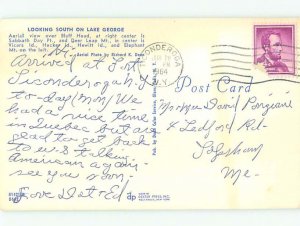 LOOKING SOUTH ON LAKE GEORGE
Aerial view over Bluff Head, at right center is
Sabbath Day Pt. and Deer Leap Mt. in center is
Vicars Id., Hecker Id., Hewitt Id., and Elephant
Mt. on the left.
Aerial Photo by Richard K. Dean
TICONDEROGA
1964
N.Y.
Post Card
Arrived at Fort
Ticonderoga N.Y.
to-day (Mon) We
had a nice time
in Quebec but are
ready to get back
to U.S. talking
American again
see you soon.
Love Dot & Ed
Mr & Mrs David
4 Ledford Rd.
Topsham
Me.
dp